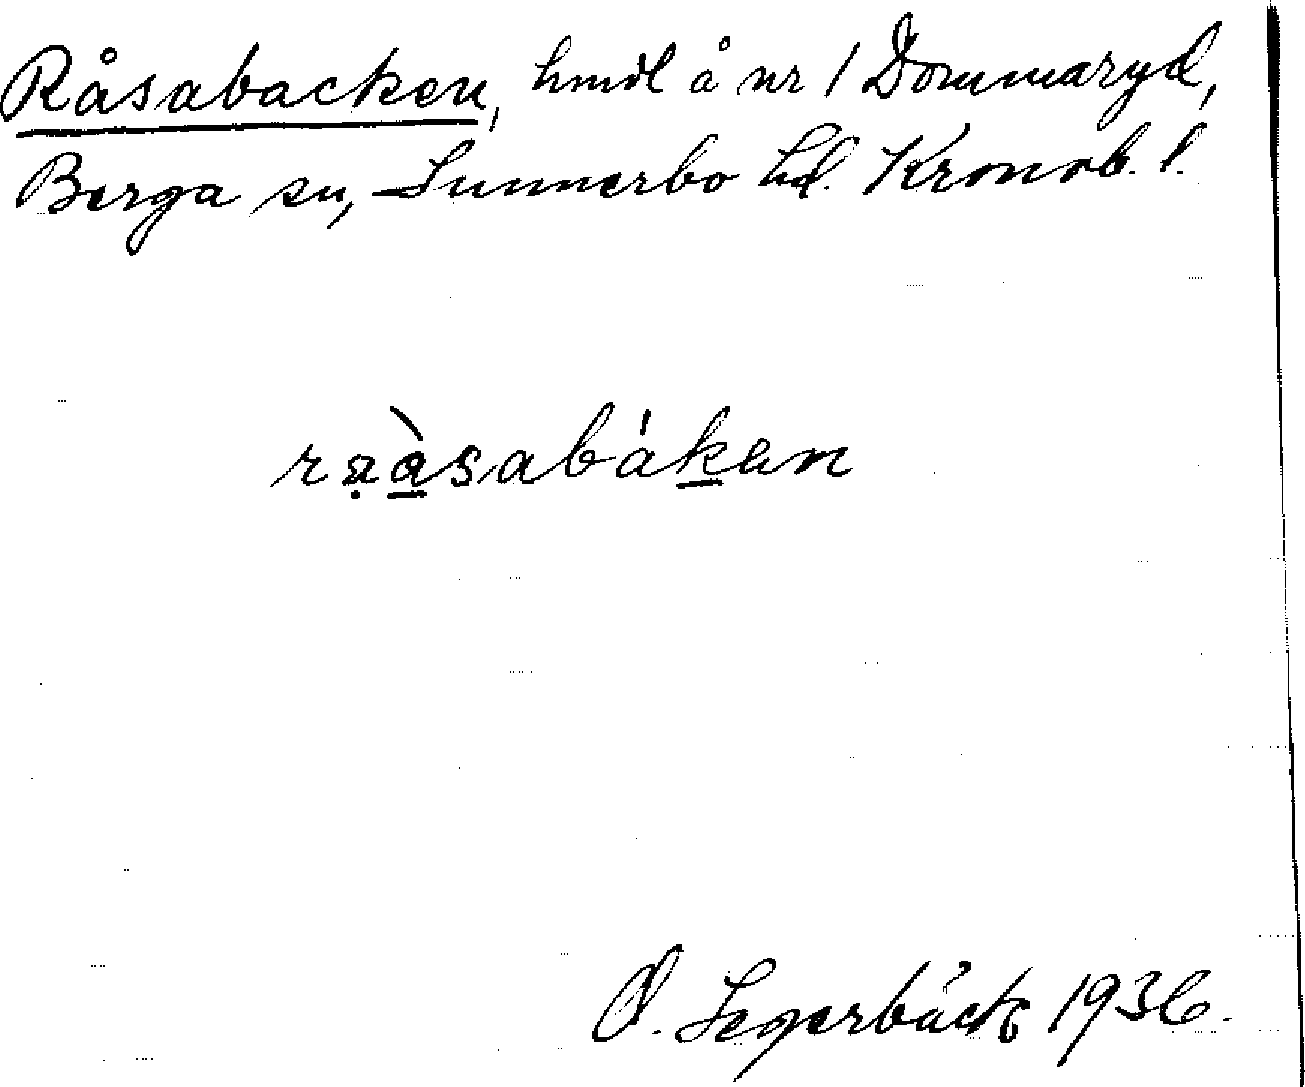 Råsabacken, hmdl å nr 1 Dommaryd,
Berga sn, Sunnerbo hd. Kronob. l.
rɐàsabákɐn
O. Segerbäck 1936.